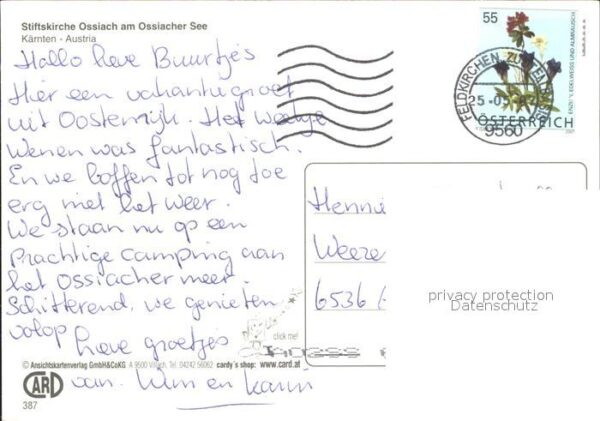 Stiftskirche Ossiach am Ossiacher See
Kärnten - Austria
Hallo lieve Buurtjes
Hier een vakantiegroet
uit Oostenrijk. Het weekje
Wenen was fantastisch.
En we boffen tot nog toe
erg met het weer.
We staan nu op een
Prachtige camping aan
het Ossiacher meer.
Schitterend, we genieten
volop
lieve groetjes
van. Wim en Karin
© Ansichtskartenverlag GmbH&CoKG A 9500 Villach, Tel. 04242 56062 cardy's shop: www.card.at
CARD
387
click me!
55
ENZIAN, EDELWEISS UND ALMRAUSCH
ÖSTERREICH
FELDKIRCHEN
9560
Hennie
Weere
6536
privacy protection
Datenschutz